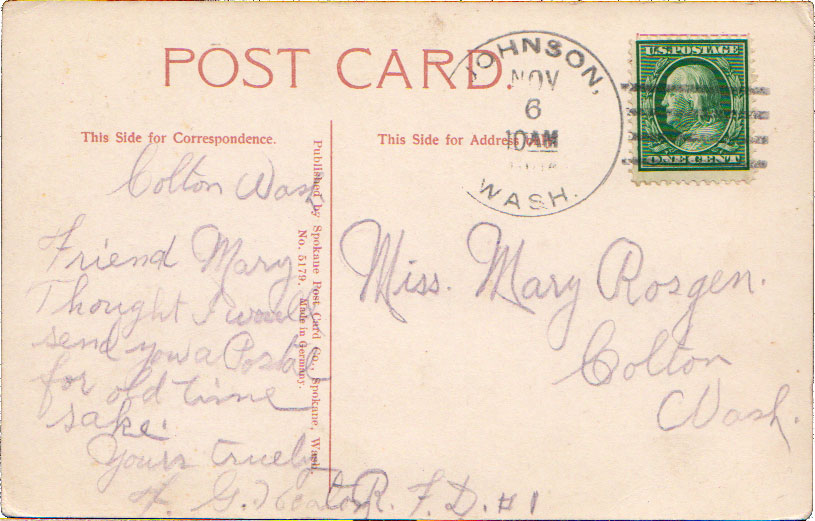 POST CARD.
This Side for Correspondence.
This Side for Address
JOHNSON,
NOV
6
10 AM
WASH.
U.S. POSTAGE
ONE CENT
Published by Spokane Post Card Co., Spokane, Wash.
No. 5179. Made in Germany.
Colton Wash
Friend Mary
Thought I would
send you a Postal
for old time
sake.
Yours truely
G.
R. F. D. #1
Miss. Mary Rosgen.
Colton
Wash.